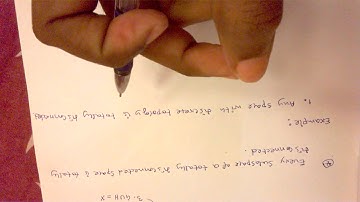 3. GUH = X
* Every Subspace of a totally disconnected space is totally
disconnected.
Example:
1. Any space with discrete topology is totally disconnected